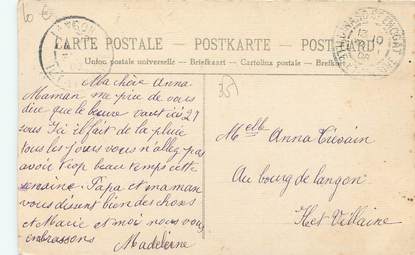 CARTE POSTALE - POSTKARTE - POSTCARD
Union postale universelle - Briefkaart - Cartolina postale - Brefkort
Ma chère Anna
Maman me prie de vous
dire que le beurre vaut ici 27
sous Ici il fait de la pluie
tous les jours vous n'allez pas
avoir trop beau temps cette
semaine. Papa et maman
vous disent bien des choses
et Marie et moi nous vous
embrassons
Madeleine
351
Melle Anna
Au bourg de Langon
Ille et Villaine